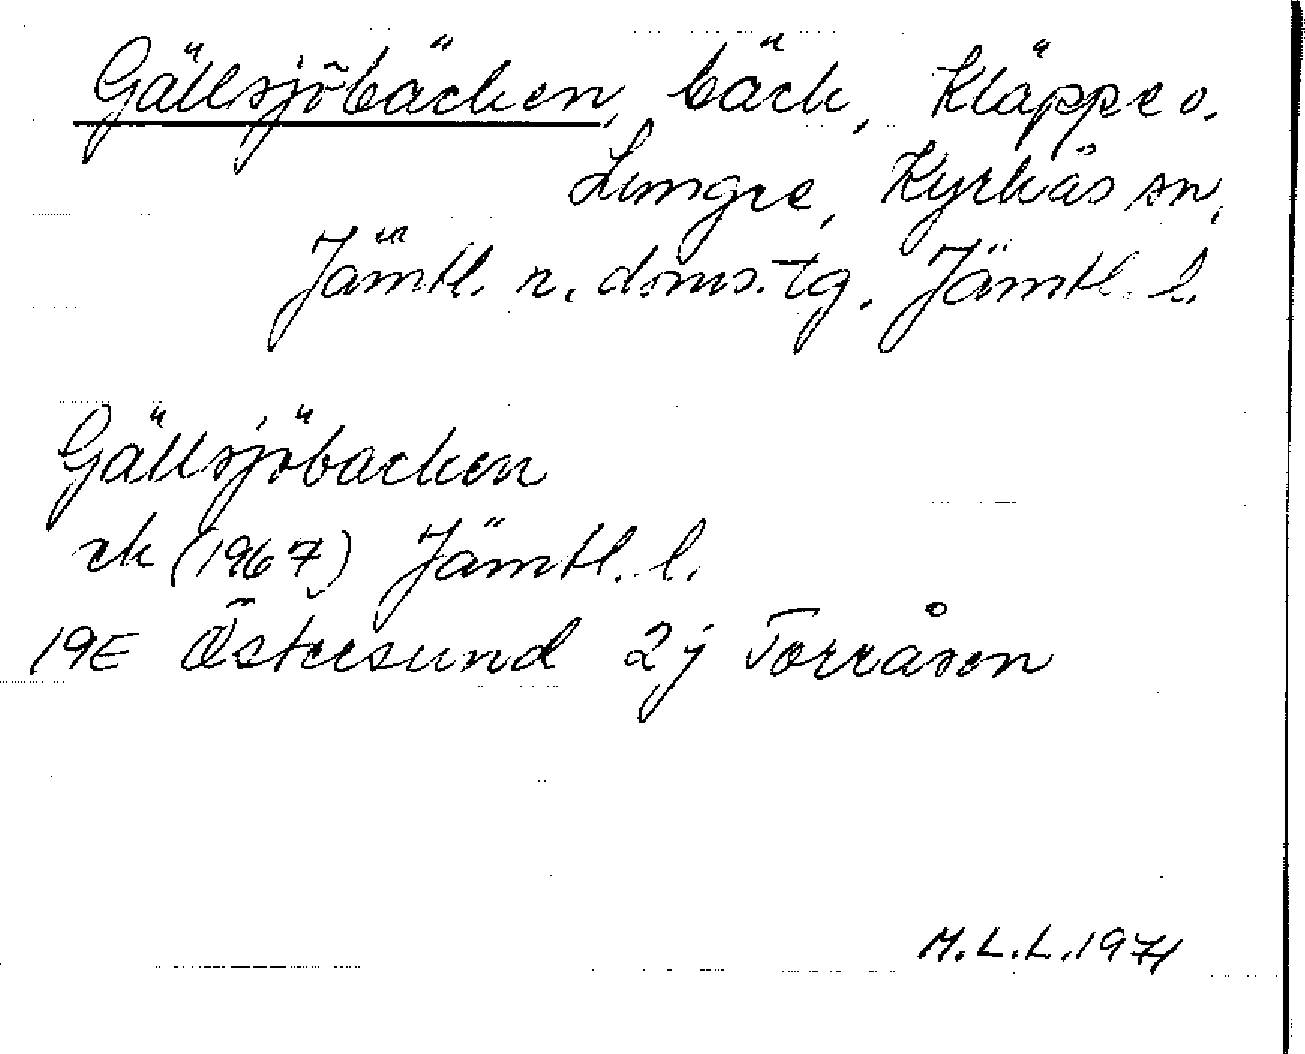 Gällsjöbäcken, bäck, Kläppe o.
Lungre, Kyrkås sn,
Jämtl. n. doms.tg. Jämtl. l.
Gällsjöbäcken
rk (1967) Jämtl. l.
19E Östersund 2j Torråsen
M.L.L. 1971